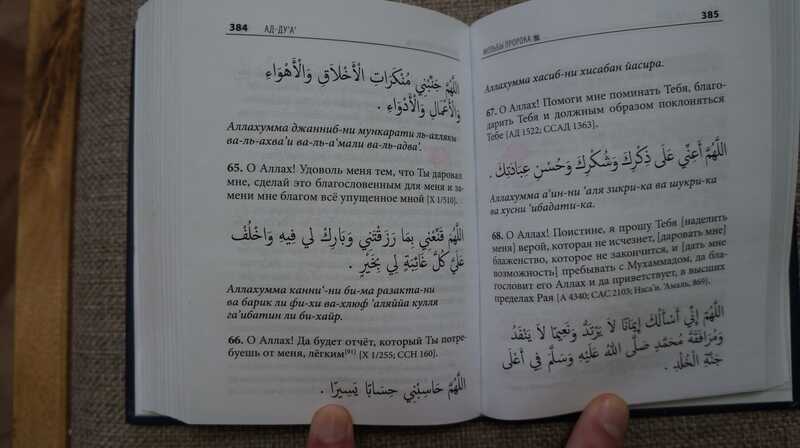 384 АД-ДУ‘А’
اللَّهُمَّ جَنِّبْنِي مُنْكَرَاتِ الْأَخْلَاقِ وَالْأَهْوَاءِ
وَالْأَعْمَالِ وَالْأَدْوَاءِ .
Аллахумма джанниб-ни мункарати ль-ахляки
ва-ль-ахва’и ва-ль-а‘мали ва-ль-адва’.
65. О Аллах! Удоволь меня тем, что Ты даровал
мне, сделай это благословенным для меня и за-
мени мне благом всё упущенное мной [Х 1/510].
اللَّهُمَّ قَنِّعْنِي بِمَا رَزَقْتَنِي وَبَارِكْ لِي فِيهِ وَاخْلُفْ
عَلَيَّ كُلَّ غَائِبَةٍ لِي بِخَيْرٍ .
Аллахумма канни‘-ни би-ма разакта-ни
ва барик ли фи-хи ва-хлюф ‘аляййа кулля
га’ибатин ли би-хайр.
66. О Аллах! Да будет отчёт, который Ты потре-
буешь от меня, лёгким[91] [Х 1/255; ССН 160].
اللَّهُمَّ حَاسِبْنِي حِسَابًا يَسِيرًا .
МОЛЬБЫ ПРОРОКА ﷺ 385
Аллахумма хасиб-ни хисабан йасира.
67. О Аллах! Помоги мне поминать Тебя, благо-
дарить Тебя и должным образом поклоняться
Тебе [АД 1522; ССАД 1363].
اللَّهُمَّ أَعِنِّي عَلَى ذِكْرِكَ وَشُكْرِكَ وَحُسْنِ عِبَادَتِكَ .
Аллахумма а‘ин-ни ‘аля зикри-ка ва шукри-ка
ва хусни ‘ибадати-ка.
68. О Аллах! Поистине, я прошу Тебя [наделить
меня] верой, которая не исчезнет, [даровать мне]
блаженство, которое не закончится, и [дать мне
возможность] пребывать с Мухаммадом, да бла-
гословит его Аллах и да приветствует, в высших
пределах Рая [А 4340; САС 2103; Наса’и. ‘Амаль, 869].
اللَّهُمَّ إِنِّي أَسْأَلُكَ إِيمَانًا لَا يَرْتَدُّ وَنَعِيمًا لَا يَنْفَدُ
وَمُرَافَقَةَ مُحَمَّدٍ صَلَّى اللهُ عَلَيْهِ وَسَلَّمَ فِي أَعْلَى
جَنَّةِ الْخُلْدِ .